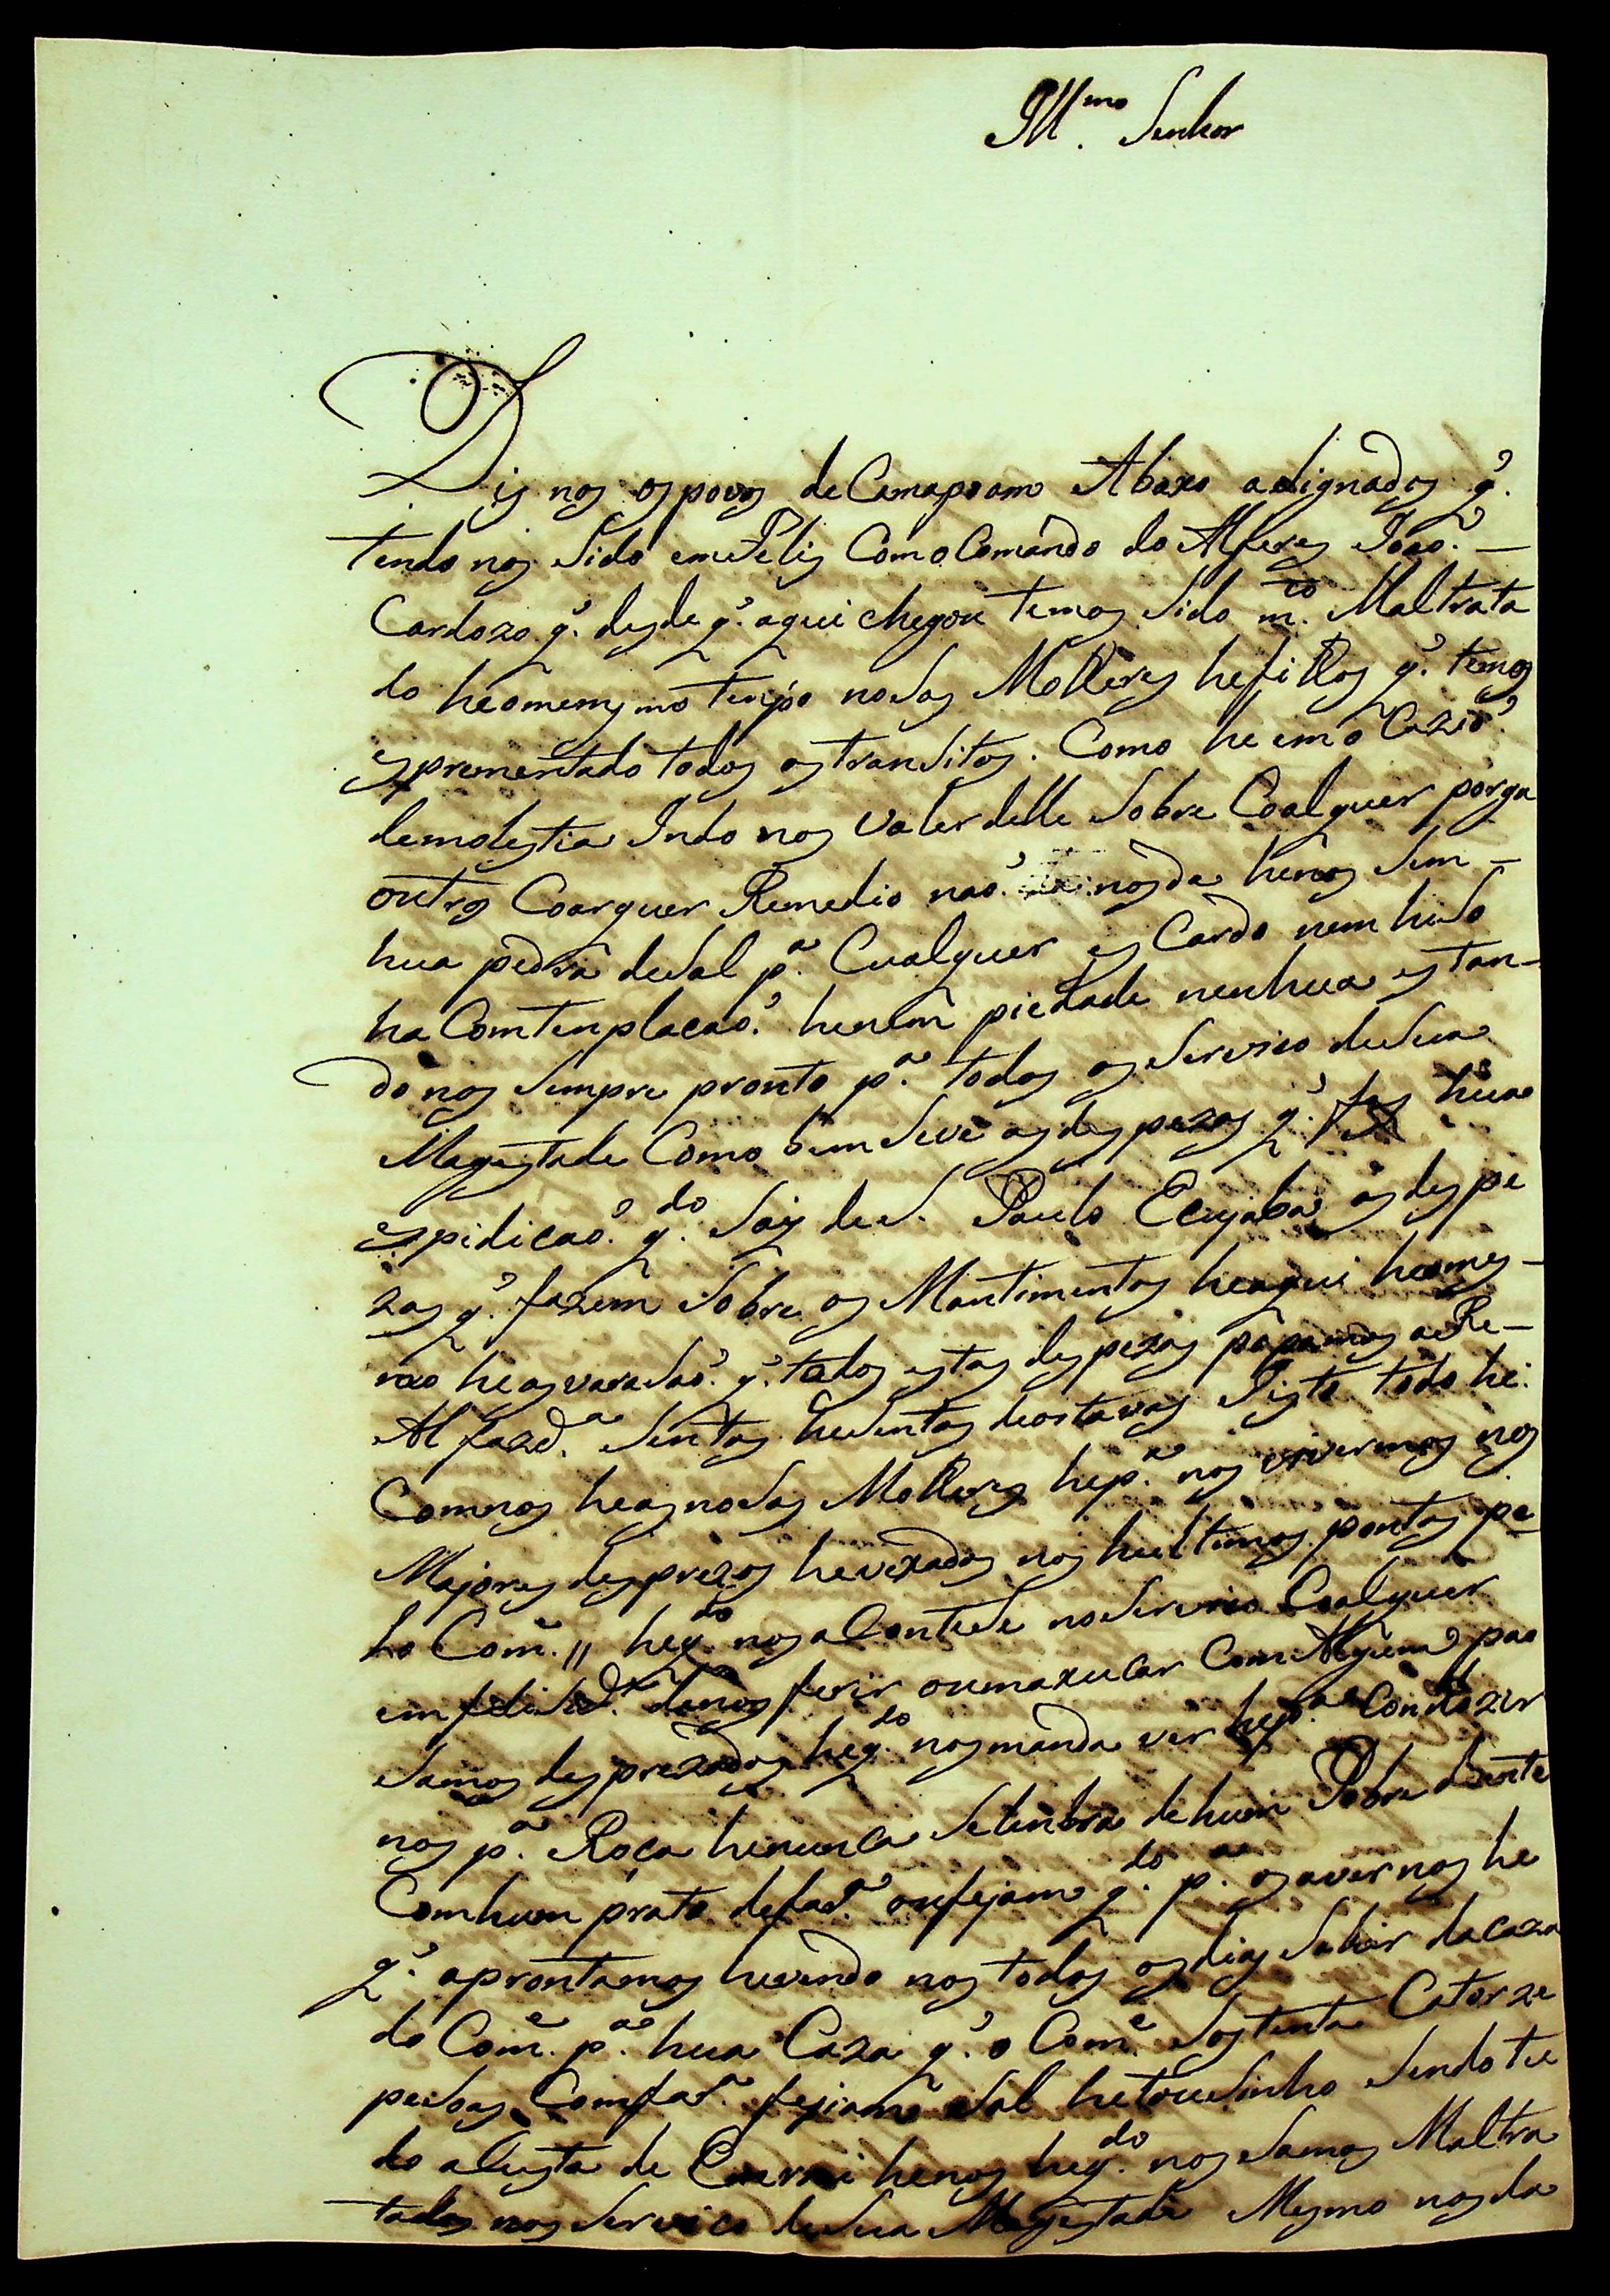 Ill.mo Senhor
Dis nos os povos de Camapoam Abaxo asignados q.
tendo nos sido emfelis Como Comando do Alferes João. —
Cardozo q. desde q. aqui chegou temos sido m.to Maltrata
do heomemsmo tenpo nosas Molheres hefilhos q. temos
esprementado todos os transitos. Como he emo Cazio
demolestia Indo nos valer delle sobre Coalquer porga
outros Coarquer Remedio nao. nosda henos sem —
hua pedra desal p.a Cualquer es Cardo nem hiso
ha Comtenplacaõ. henem piedade nenhua estan—
do nos sempre pronto p.a todos os servico desua
Magestade Como bem seve as despezas q. fas hua
espidicaõ. q.do sai de S. Paulo Ecujaba as despe
zas q. fazem sobre os Mantimentos heaqui heomes—
mo heasvarasaõ. q. todos estas despezas papamos aRe—
Al fazd.a sentos hesentos heostavos Jisto todo he.
Comnos heasnosas Molheres hep.a nos vivermos nos
Majores desprezos hevexados nos hultimos pontos pe
lo Com.e // heq.do nos aContese noservico Coalquer
emfelisid.e denos ferir oumaxucar Com Algum pao
samos desprezados heq.do nosmanda ver hep.a Condozir
nos p.a Roca henunca selenbra dehum Pobre doente
Comhum prato defar.a oufejam q.do p.a osaver nos he
q. aprontamos hevendo nos todos osdias sahir dacaza
do Com.e p.a hua Caza q. o Com.e sostenta Catorze
pesoas Comfar.a fejam sal hetousinho sendo tu
do aCusta de henos heq.do nos samos Maltra
tados nos servico desua Magestade Mesmo nosda